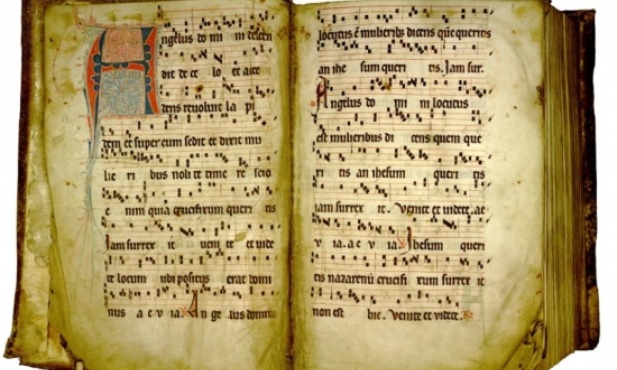 Angelus do mi ni descen
dit de ce lo et acce
dens revolvit la pi
dem et super eum sedit et dixit mu
lie ri bus noli te time re scio
e nim quia crucifixum queri tis
Iam surrex it veni te et vide
te locum ubi positus erat domi
nus a e v ia. An ge lus domini
locutus ē mulierib dicens quē queritis
an ihe sum queri tis. Iam sur.
Angelus do mi ni locutus
est mulieribus di cens quem que
ri tis an ihesum queri tis
iam surrex it. Venite et videte. ae
v ia. a e v ia. Ihesum queri
tis nazarenū crucifi xum surrex it
non est hic. Venite et videte.